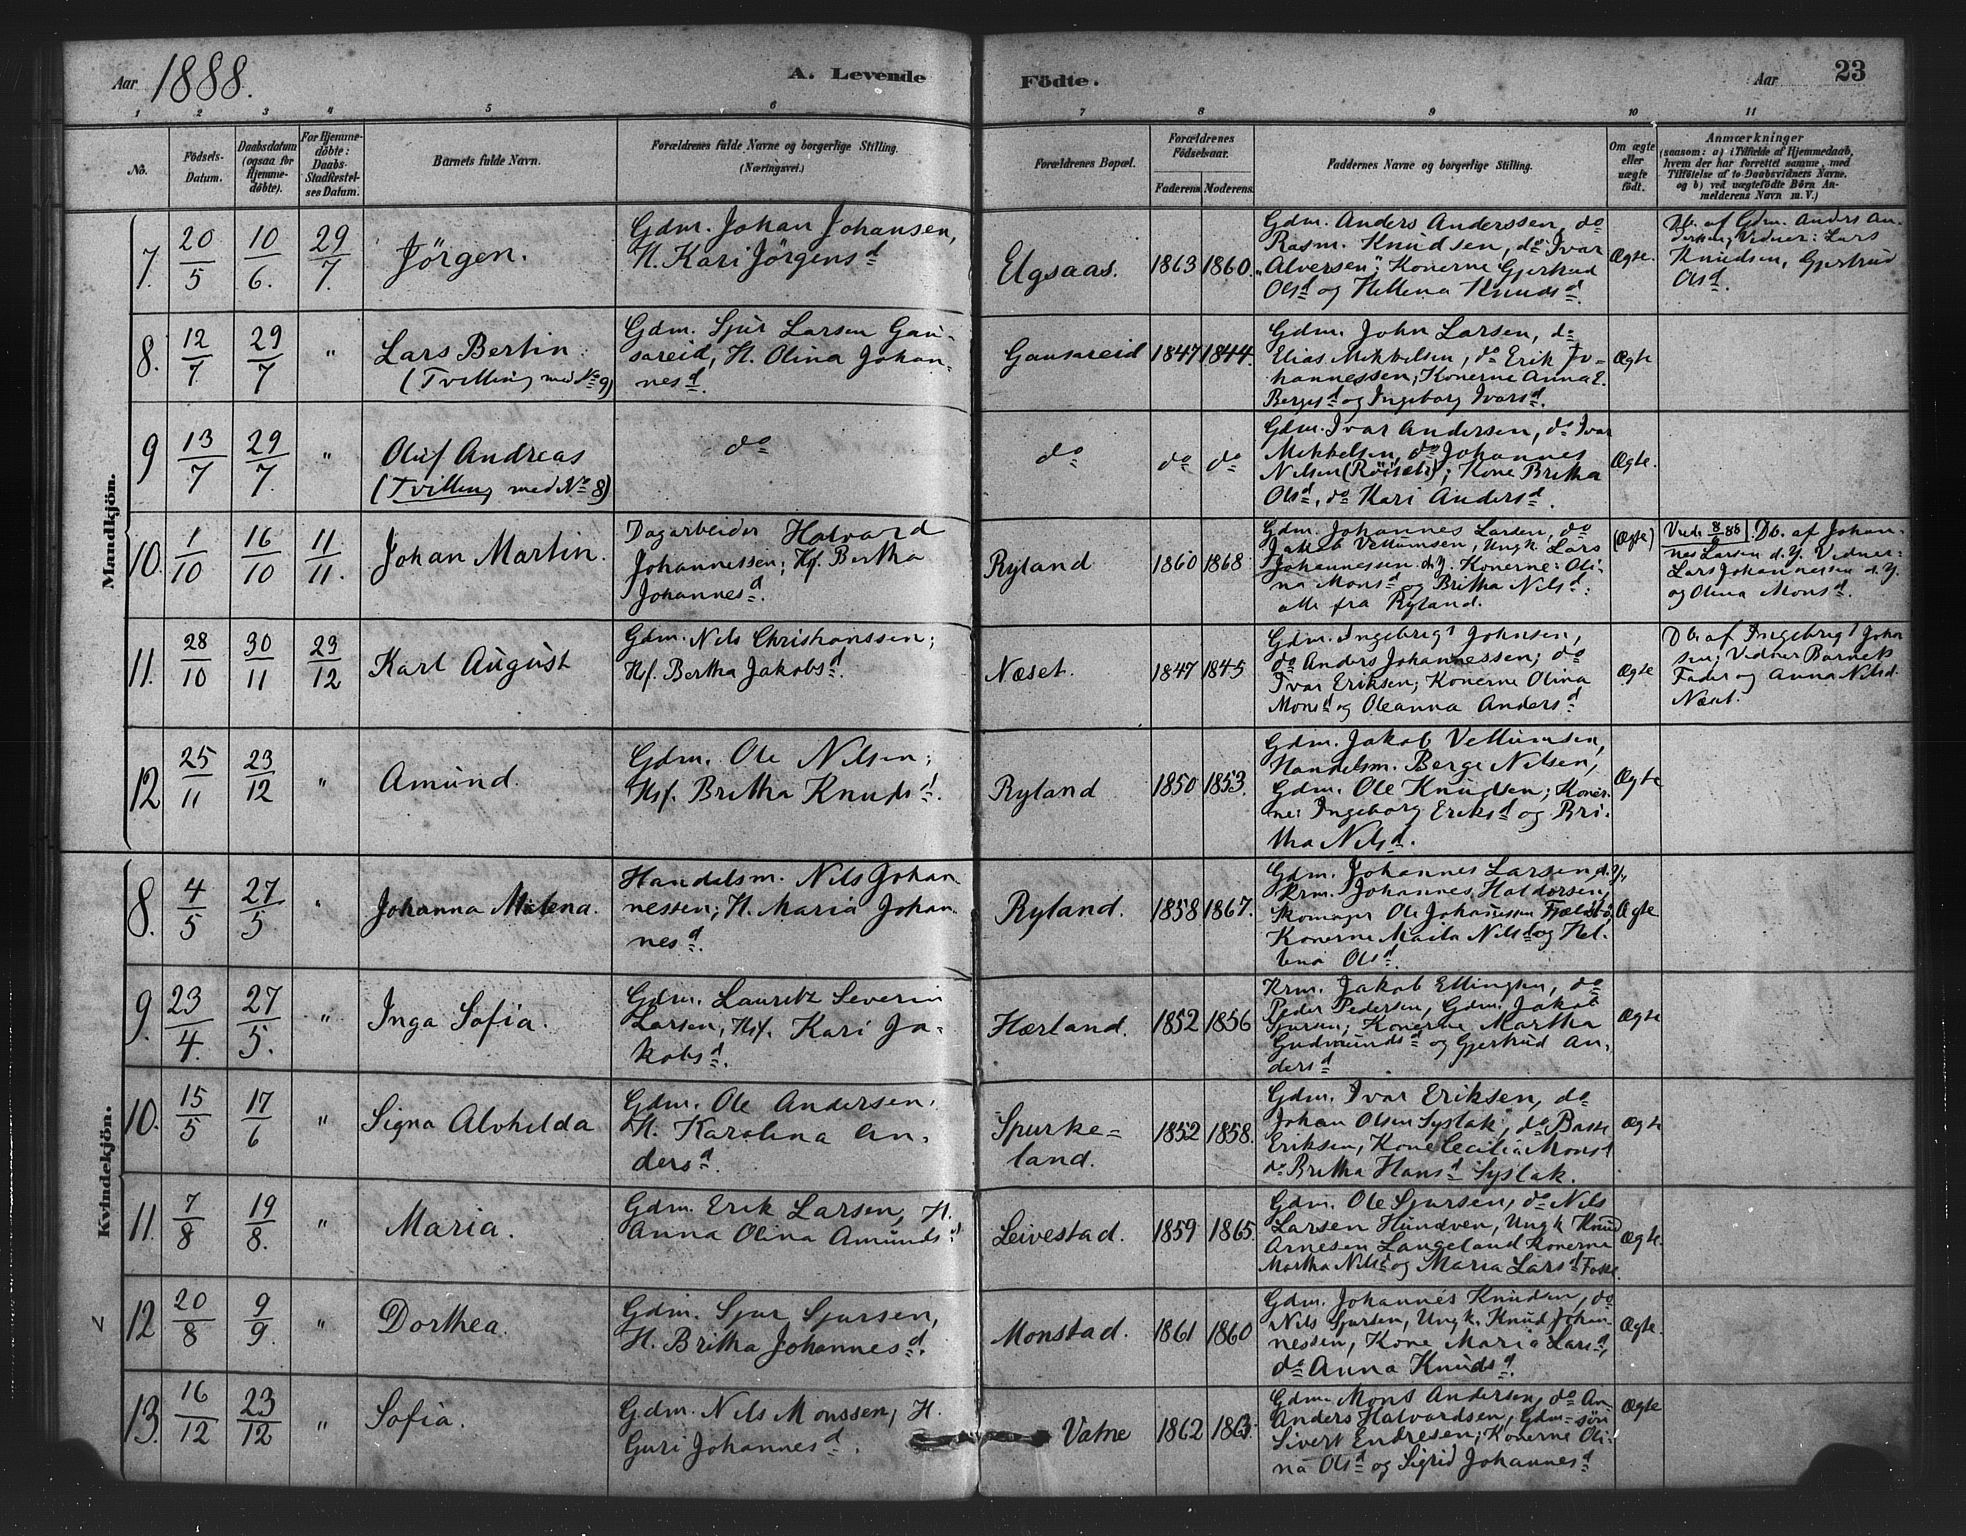 Aar 1888.
A. Levende Födte.
Aar 23
1 2 3 4 5 6 7 8 9 10 11
No.
Födsels-Datum.
Daabsdatum (ogsaa for Hjemmedöbte).
For Hjemmedöbte: Daabs-Stadfæstelses Datum.
Barnets fulde Navn.
Forældrenes fulde Navne og borgerlige Stilling.
(Næringsvei.)
Forældrenes Bopæl.
Forældrenes Födselsaar.
Faderens. Moderens.
Faddernes Navne og borgerlige Stilling.
Om ægte eller uægte födt.
Anmærkninger
(saasom: a) i Tilfælde af Hjemmedaab, hvem der har forrettet samme, med Tilföielse af to Daabsvidners Navne, og b) ved uægtefödte Börn Anmelderens Navn m.V.)
Mandkjön.
7. 20/5 10/6. 29/7. Jörgen.
Gdm. Johan Johansen,
H. Kari Jörgensd.
Elgsaas. 1863 1860.
Gdm. Anders Anderssen, do
Rasm. Knudsen, do Ivar
Alversen; Konerne Gjertrud
Olsd og Hellena Knudsd.
Ægte.
Db. af Gdm. Anders An-
dersen, Vidner: Lars
Knudsen, Gjertrud
Olsd.
8. 12/7 29/7 " Lars Bertin.
(Tvilling med No 9)
Gdm. Sjur Larsen Gau-
sareid, H. Olina Johan-
nesd.
Gausareid 1847 1844.
Gdm. John Larsen, do
Elias Mikkelsen, do Erik Jo-
hannessen; Konerne Anna E.
Bergesd og Ingeborg Ivarsd.
Ægte
9 13/7 29/7. " Oluf Andreas
(Tvilling med No 8)
do
do do do
Gdm. Ivar Andersen, do Ivar
Mikkelsen, do Johannes
Nilsen; Kone Britha
Olsd, do Kari Andersd.
Ægte.
10. 1/10 16/10 11/11. Johan Martin.
Dagarbeider Halvard
Johannessen; Hf. Bertha
Johannesd.
Ryland 1860 1868.
Gdm. Johannes Larsen, do
Jakob Vellumsen, Ungk. Lars
Johannessen d.y. Konerne: Oli-
na Monsd og Britha Nilsd:
alle fra Ryland.
(Ægte)
Db. af Johan-
nes Larsen d.y. Vidner:
Lars Johannessen d.y.
og Olina Monsd.
11. 28/10 30/11 23/12 Karl August
Gdm. Nils Christianssen;
Hsf. Bertha Jakobsd.
Næset. 1847 1845
Gdm. Ingebrigt Johnsen,
do Anders Johannessen; do
Ivar Eriksen; Konerne Olina
Monsd og Oleanna Andersd
Ægte
Db. af Ingebrigt John
sen; Vidner Barnets
Fader og Anna Nilsd.
Næset.
12 25/11 23/12 " Amund.
Gdm. Ole Nilsen;
Hsf. Britha Knudsd.
Ryland 1850 1853.
Gdm. Jakob Vellumsen,
Handelsm. Berge Nilsen,
Gdm. Ole Knudsen; Koner-
ne: Ingeborg Eriksd og Bri-
tha Nilsd.
Ægte
Kvindekjön.
8. 4/5 27/5 " Johanna Malena.
Handelsm. Nils Johan
nessen; H. Maria Johan
nesd.
Ryland. 1858 1867.
Gdm. Johannes Larsen d.y.,
Krm. Johannes Haldorsen,
Skomager Ole Johannessen
Konerne Nilsd og Hel-
lena Olsd.
Ægte
9. 23/4. 27/5. " Inga Sofia.
Gdm. Lauritz Severin
Larsen, Hsf. Kari Ja-
kobsd.
Hærland. 1852 1856
Krm. Jakob Ellingsen, do
Peder Pedersen, Gdm. Jakob
Sjursen; Konerne Martha
Gudmundsd og Gjertrud An-
dersd
Ægte
10. 15/5 17/6 " Signa Alvhilda
Gdm. Ole Andersen.
H. Karolina An-
dersd.
Spurke-
land. 1852 1858.
Gdm. Ivar Eriksen, do
Johan Olsen Syslak, do
Eriksen, Kone Cecilia Monsd
do Britha Hansd Syslak.
Ægte
11. 7/8 19/8. " Maria.
Gdm. Erik Larsen, H.
Anna Olina Amundsd
Leivestad. 1859 1865.
Gdm. Ole Sjursen, do Nils
Larsen Hundven, Ungk Knud
Arnesen Langeland Konerne
Martha Nilsd og Maria Larsd
Ægte.
12 20/8 9/9. " Dorthea.
Gdm. Sjur Sjursen,
H. Britha Johannesd.
Monstad. 1861 1860
Gdm. Johannes Knudsen, do
Nils Sjursen, Ungk. Knud Johan-
nessen, Kone Maria Larsd,
do Anna Knudsd.
Ægte.
13. 16/12 23/12 " Sofia.
Gdm. Nils Monssen, H.
Guri Johannesd.
Vatne 1862 1863.
Gdm. Mons Andersen, do An-
Anders Halvardsen, Gdm-sön
Sivert Endresen; Konerne Oli-
na Olsd og Sigrid Johannesd
Ægte